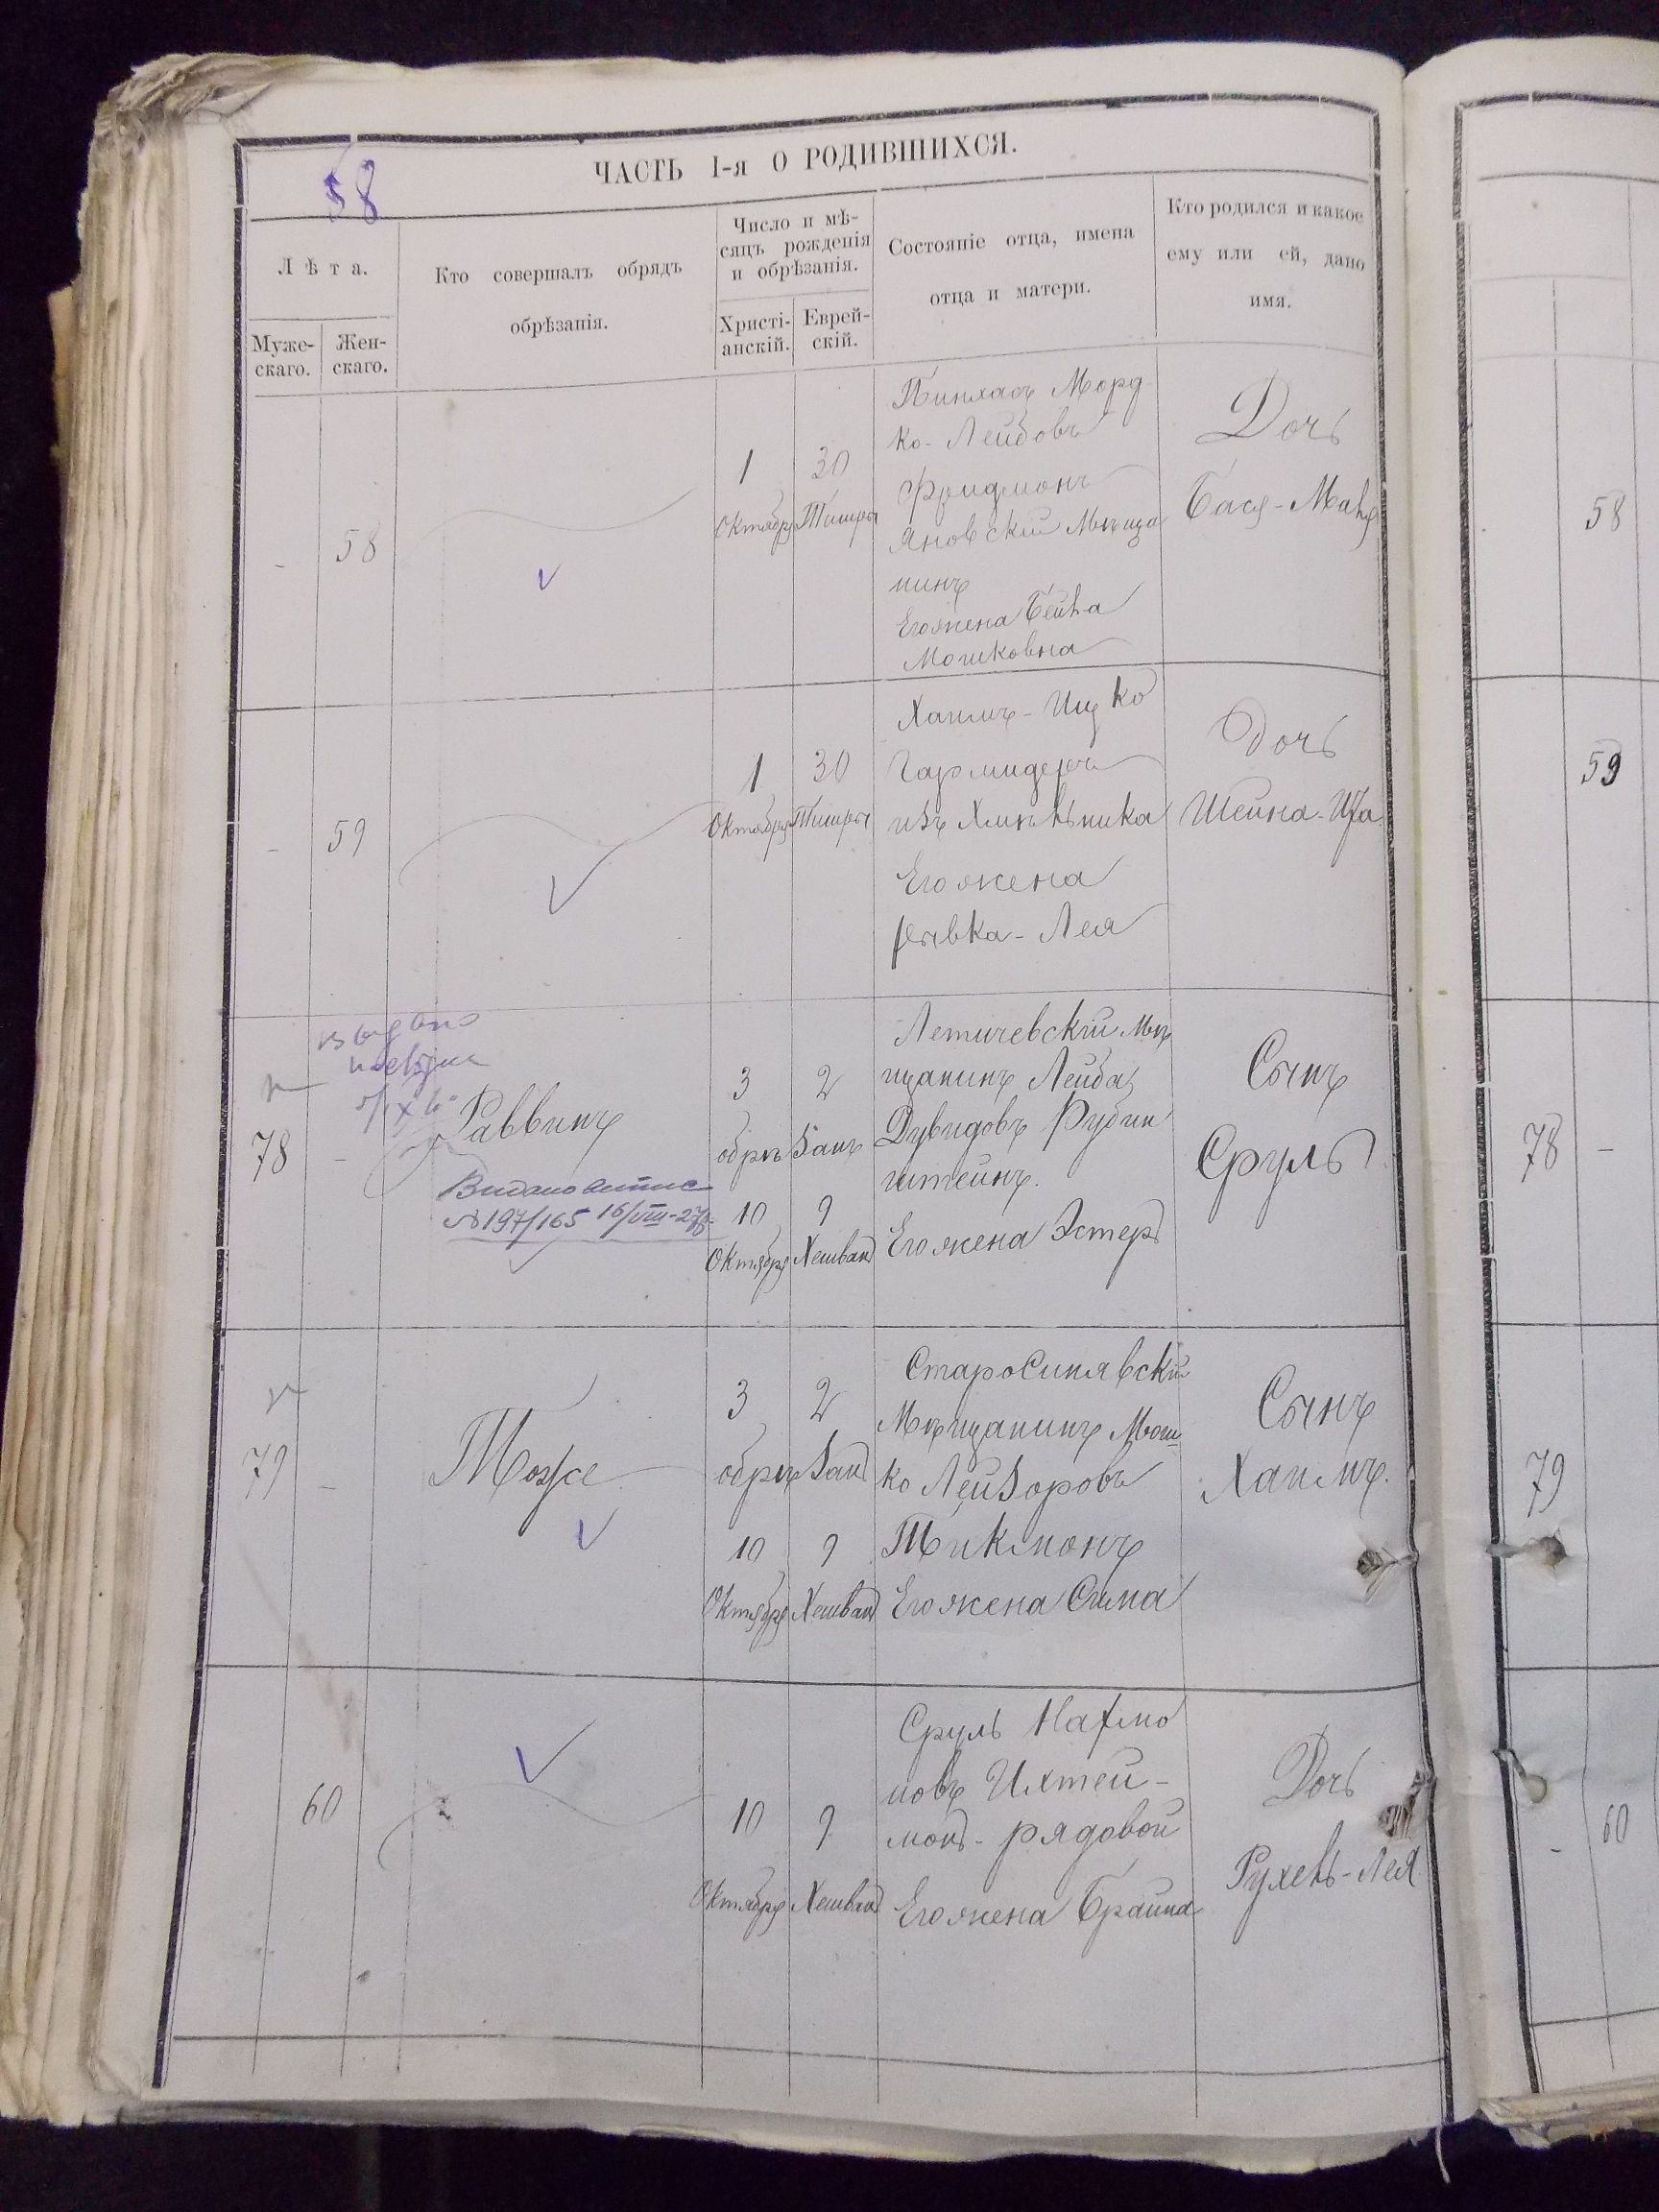 58
ЧАСТЬ I-я О РОДИВШИХСЯ.
Лѣта.
Муже-
скаго.
Жен-
скаго.
Кто совершалъ обрядъ
обрѣзанія.
Число и мѣ-
сяцъ рожденія
и обрѣзанія.
Христі-
анскій.
Еврей-
скій.
Состояніе отца, имена
отца и матери.
Кто родился и какое
ему или ей, дано
имя.
-
58
1
Октября
30
Тишры
Пинхасъ Морд-
ко-Лейбовъ
Фридманъ
Яновскій Мѣща
нинъ
Его жена Бейла
Мошковна
Дочь
Бася-
58
-
59
1
Октября
30
Тишры
Хаимъ-Ицко
изъ Хмѣльника
Его жена
Рывка-Лея
Дочь
Шейна-
59
78
-
Раввинъ
№197/165 16/VIII-27р.
3
2
обрѣзанъ
10
9
Октября
Хешванъ
Летичевскій Мѣ
щанинъ Лейба
Дувидовъ Рубин
штейнъ.
Его жена Эстеръ
Сынъ
Сруль.
78
-
79
-
Тоже
3
2
обрѣзанъ
10
9
Октября
Хешванъ
Старосинявскій
Мѣщанинъ Мош-
ко Лейзоровъ
Тикманъ
Его жена Сима
Сынъ
Хаимъ.
79
60
10
Октября
9
Хешванъ
Сруль Нахма
новъ Ихтей-
манъ-рядовой
Его жена Брайна
Дочь
Рухель-Лея
-
60